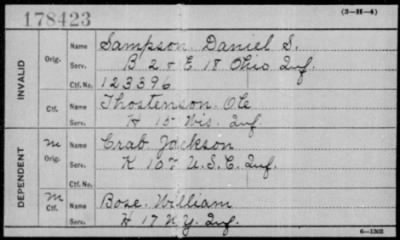 178423
(3-H-4)
INVALID
Orig. Name Sampson. Daniel S.
Serv. B 2 & E 18 Ohio Inf.
Ctf. No. 123396
Ctf. Name Thostenson. Ole
Serv. H 15 Wis. Inf.
DEPENDENT
M Orig. Name Crab Jackson
Serv. K 107 U.S.C. Inf.
Ctf. No.
M Ctf. Name Bose. William
Serv. H 17 N.Y. Inf.